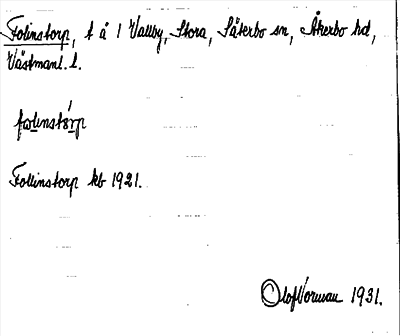 Folinstorp, t å 1 Vallby, Stora, Säterbo sn, Åkerbo hd,
Västmanl. l.
fωlinstórp
Follinstorp kb 1921.
Olof Vorman 1931.